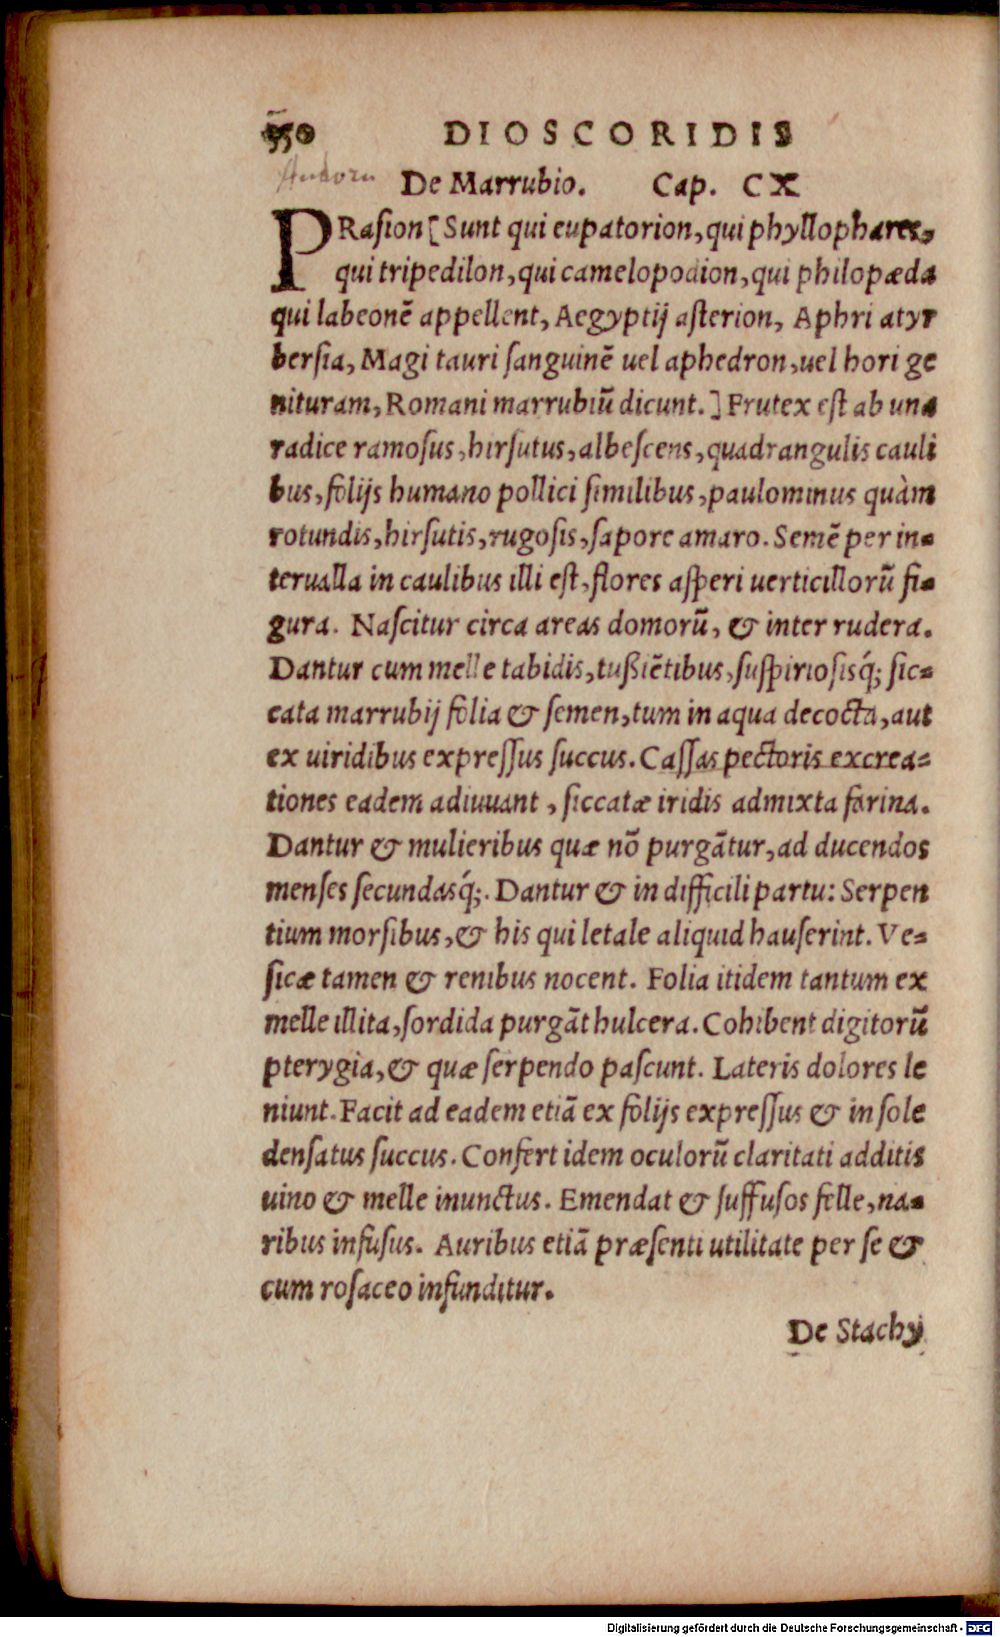 550 DIOSCORIDIS
Andorn
De Marrubio. Cap. CX
PRasion [Sunt qui eupatorion, qui phyllophares,
qui tripedilon, qui camelopodion, qui philopæda
qui labeonẽ appellent, Aegyptij asterion, Aphri atyr
bersia, Magi tauri sanguinẽ uel aphedron, uel hori ge
nituram, Romani marrubiũ dicunt.] Frutex est ab una
radice ramosus, hirsutus, albescens, quadrangulis cauli
bus, folijs humano pollici similibus, paulominus quàm
rotundis, hirsutis, rugosis, sapore amaro. Semẽ per in-
teruallа in caulibus illi est, flores asperi uerticillorũ fi-
gura. Nascitur circa areas domorũ, & inter rudera.
Dantur cum melle tabidis, tußiẽtibus, suspiriosisq́; sic-
cata marrubij folia & semen, tum in aqua decocta, aut
ex uiridibus expressus succus. Cassas pectoris excrea-
tiones eadem adiuuant, siccatæ iridis admixta farina.
Dantur & mulieribus quæ nõ purgãtur, ad ducendos
menses secundasq́;. Dantur & in difficili partu: Serpen
tium morsibus, & his qui letale aliquid hauserint. Ve-
sicæ tamen & renibus nocent. Folia itidem tantum ex
melle illita, sordida purgãt hulcera. Cohibent digitorũ
pterygia, & quæ serpendo pascunt. Lateris dolores le
niunt. Facit ad eadem etiã ex folijs expressus & in sole
densatus succus. Confert idem oculorũ claritati additis
uino & melle inunctus. Emendat & suffusos felle, na-
ribus infusus. Auribus etiã præsenti utilitate per se &
cum rosaceo infunditur.
De Stachy
Digitalisierung gefördert durch die Deutsche Forschungsgemeinschaft - DFG